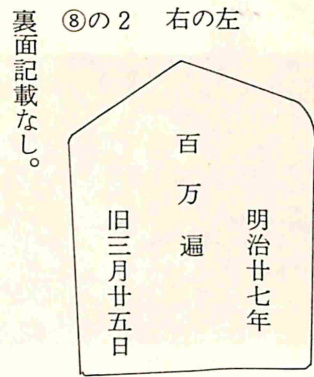 ⑧の2 右の左
明治廿七年
百万遍
旧三月廿五日
裏面記載なし。